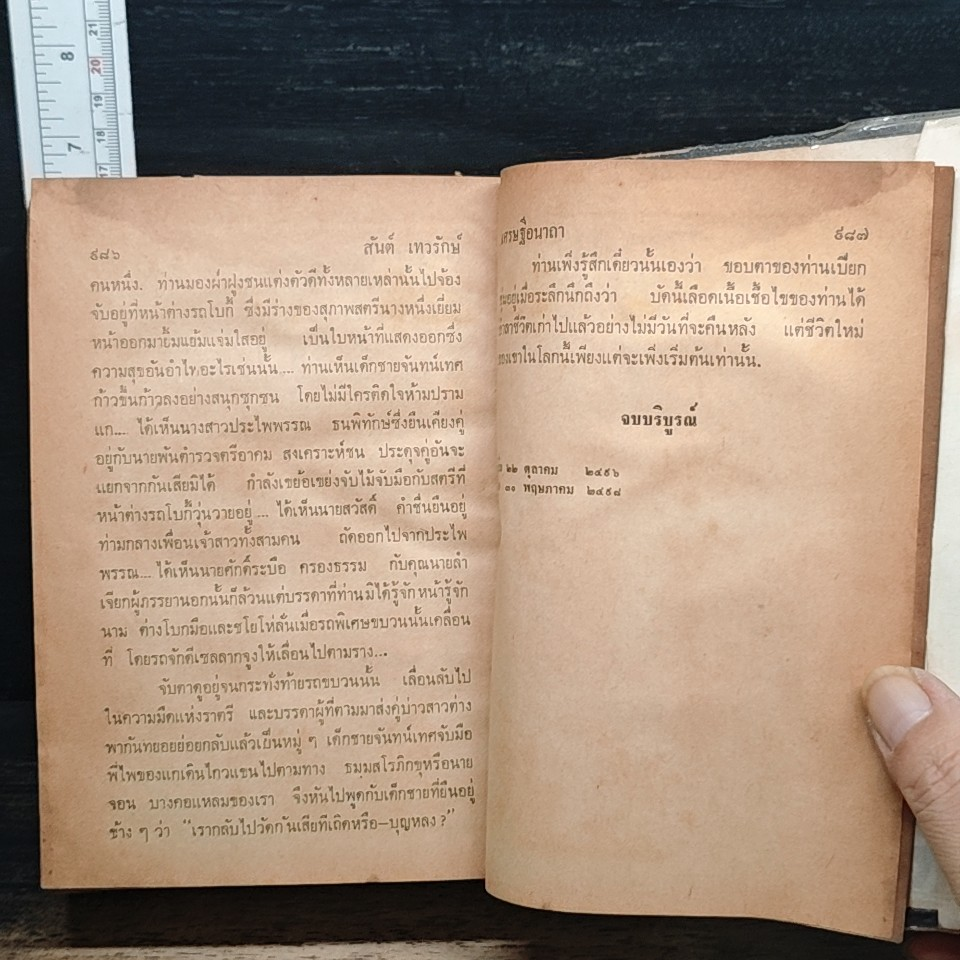 8
7
21
20
19
18
17
๙๘๖ สันต์ เทวรักษ์
คนหนึ่ง. ท่านมองผ่าฝูงชนแต่งตัวดีทั้งหลายเหล่านั้นไปจ้อง
จับอยู่ที่หน้าต่างรถโบกี้ ซึ่งมีร่างของสุภาพสตรีนางหนึ่งเยี่ยม
หน้าออกมายิ้มแย้มแจ่มใสอยู่ เป็นใบหน้าที่แสดงออกซึ่ง
ความสุขอันอำไพอะไรเช่นนั้น.... ท่านเห็นเด็กชายจันทน์เทศ
ก้าวขึ้นก้าวลงอย่างสนุกซุกซน โดยไม่มีใครติดใจห้ามปราม
แก.... ได้เห็นนางสาวประไพพรรณ ธนพิทักษ์ซึ่งยืนเคียงคู่
อยู่กับนายพันตำรวจตรีอาคม สงเคราะห์ชน ประดุจคู่อันจะ
แยกจากกันเสียมิได้ กำลังเขย้อเขย่งจับไม้จับมือกับสตรีที่
หน้าต่างรถโบกี้วุ่นวายอยู่.... ได้เห็นนายสวัสดิ์ คำชื่นยืนอยู่
ท่ามกลางเพื่อนเจ้าสาวทั้งสามคน ถัดออกไปจากประไพ
พรรณ.... ได้เห็นนายศักดิ์ระบือ ครองธรรม กับคุณนายลำ
เจียกผู้ภรรยานอกนั้นก็ล้วนแต่บรรดาที่ท่านมิได้รู้จักหน้ารู้จัก
นาม ต่างโบกมือและชโยโห่ลั่นเมื่อรถพิเศษขบวนนั้นเคลื่อน
ที่ โดยรถจักดีเซลลากจูงให้เลื่อนไปตามราง....
จับตาดูอยู่จนกระทั่งท้ายรถขบวนนั้น เลื่อนลับไป
ในความมืดแห่งราตรี และบรรดาผู้ที่ตามมาส่งคู่บ่าวสาวต่าง
พากันทยอยย่อยกลับแล้วเป็นหมู่ ๆ เด็กชายจันทน์เทศจับมือ
พี่ไพของแกเดินไกวแขนไปตามทาง ธมฺมสโรภิกขุหรือนาย
จอน บางคอแหลมของเรา จึงหันไปพูดกับเด็กชายที่ยืนอยู่
ข้าง ๆ ว่า “เรากลับไปวัดกันเสียทีเถิดหรือ—บุญหลง ?”
เศรษฐีอนาถา ๙๘๗
ท่านเพิ่งรู้สึกเดี๋ยวนั้นเองว่า ขอบตาของท่านเปียก
ชุ่มอยู่เมื่อระลึกนึกถึงว่า บัดนี้เลือดเนื้อเชื้อไขของท่านได้
ลาชีวิตเก่าไปแล้วอย่างไม่มีวันที่จะคืนหลัง แต่ชีวิตใหม่
ของเขาในโลกนี้เพียงแต่จะเพิ่งเริ่มต้นเท่านั้น.
จบบริบูรณ์
๒๒ ตุลาคม ๒๔๙๖
๓๐ พฤษภาคม ๒๔๙๘